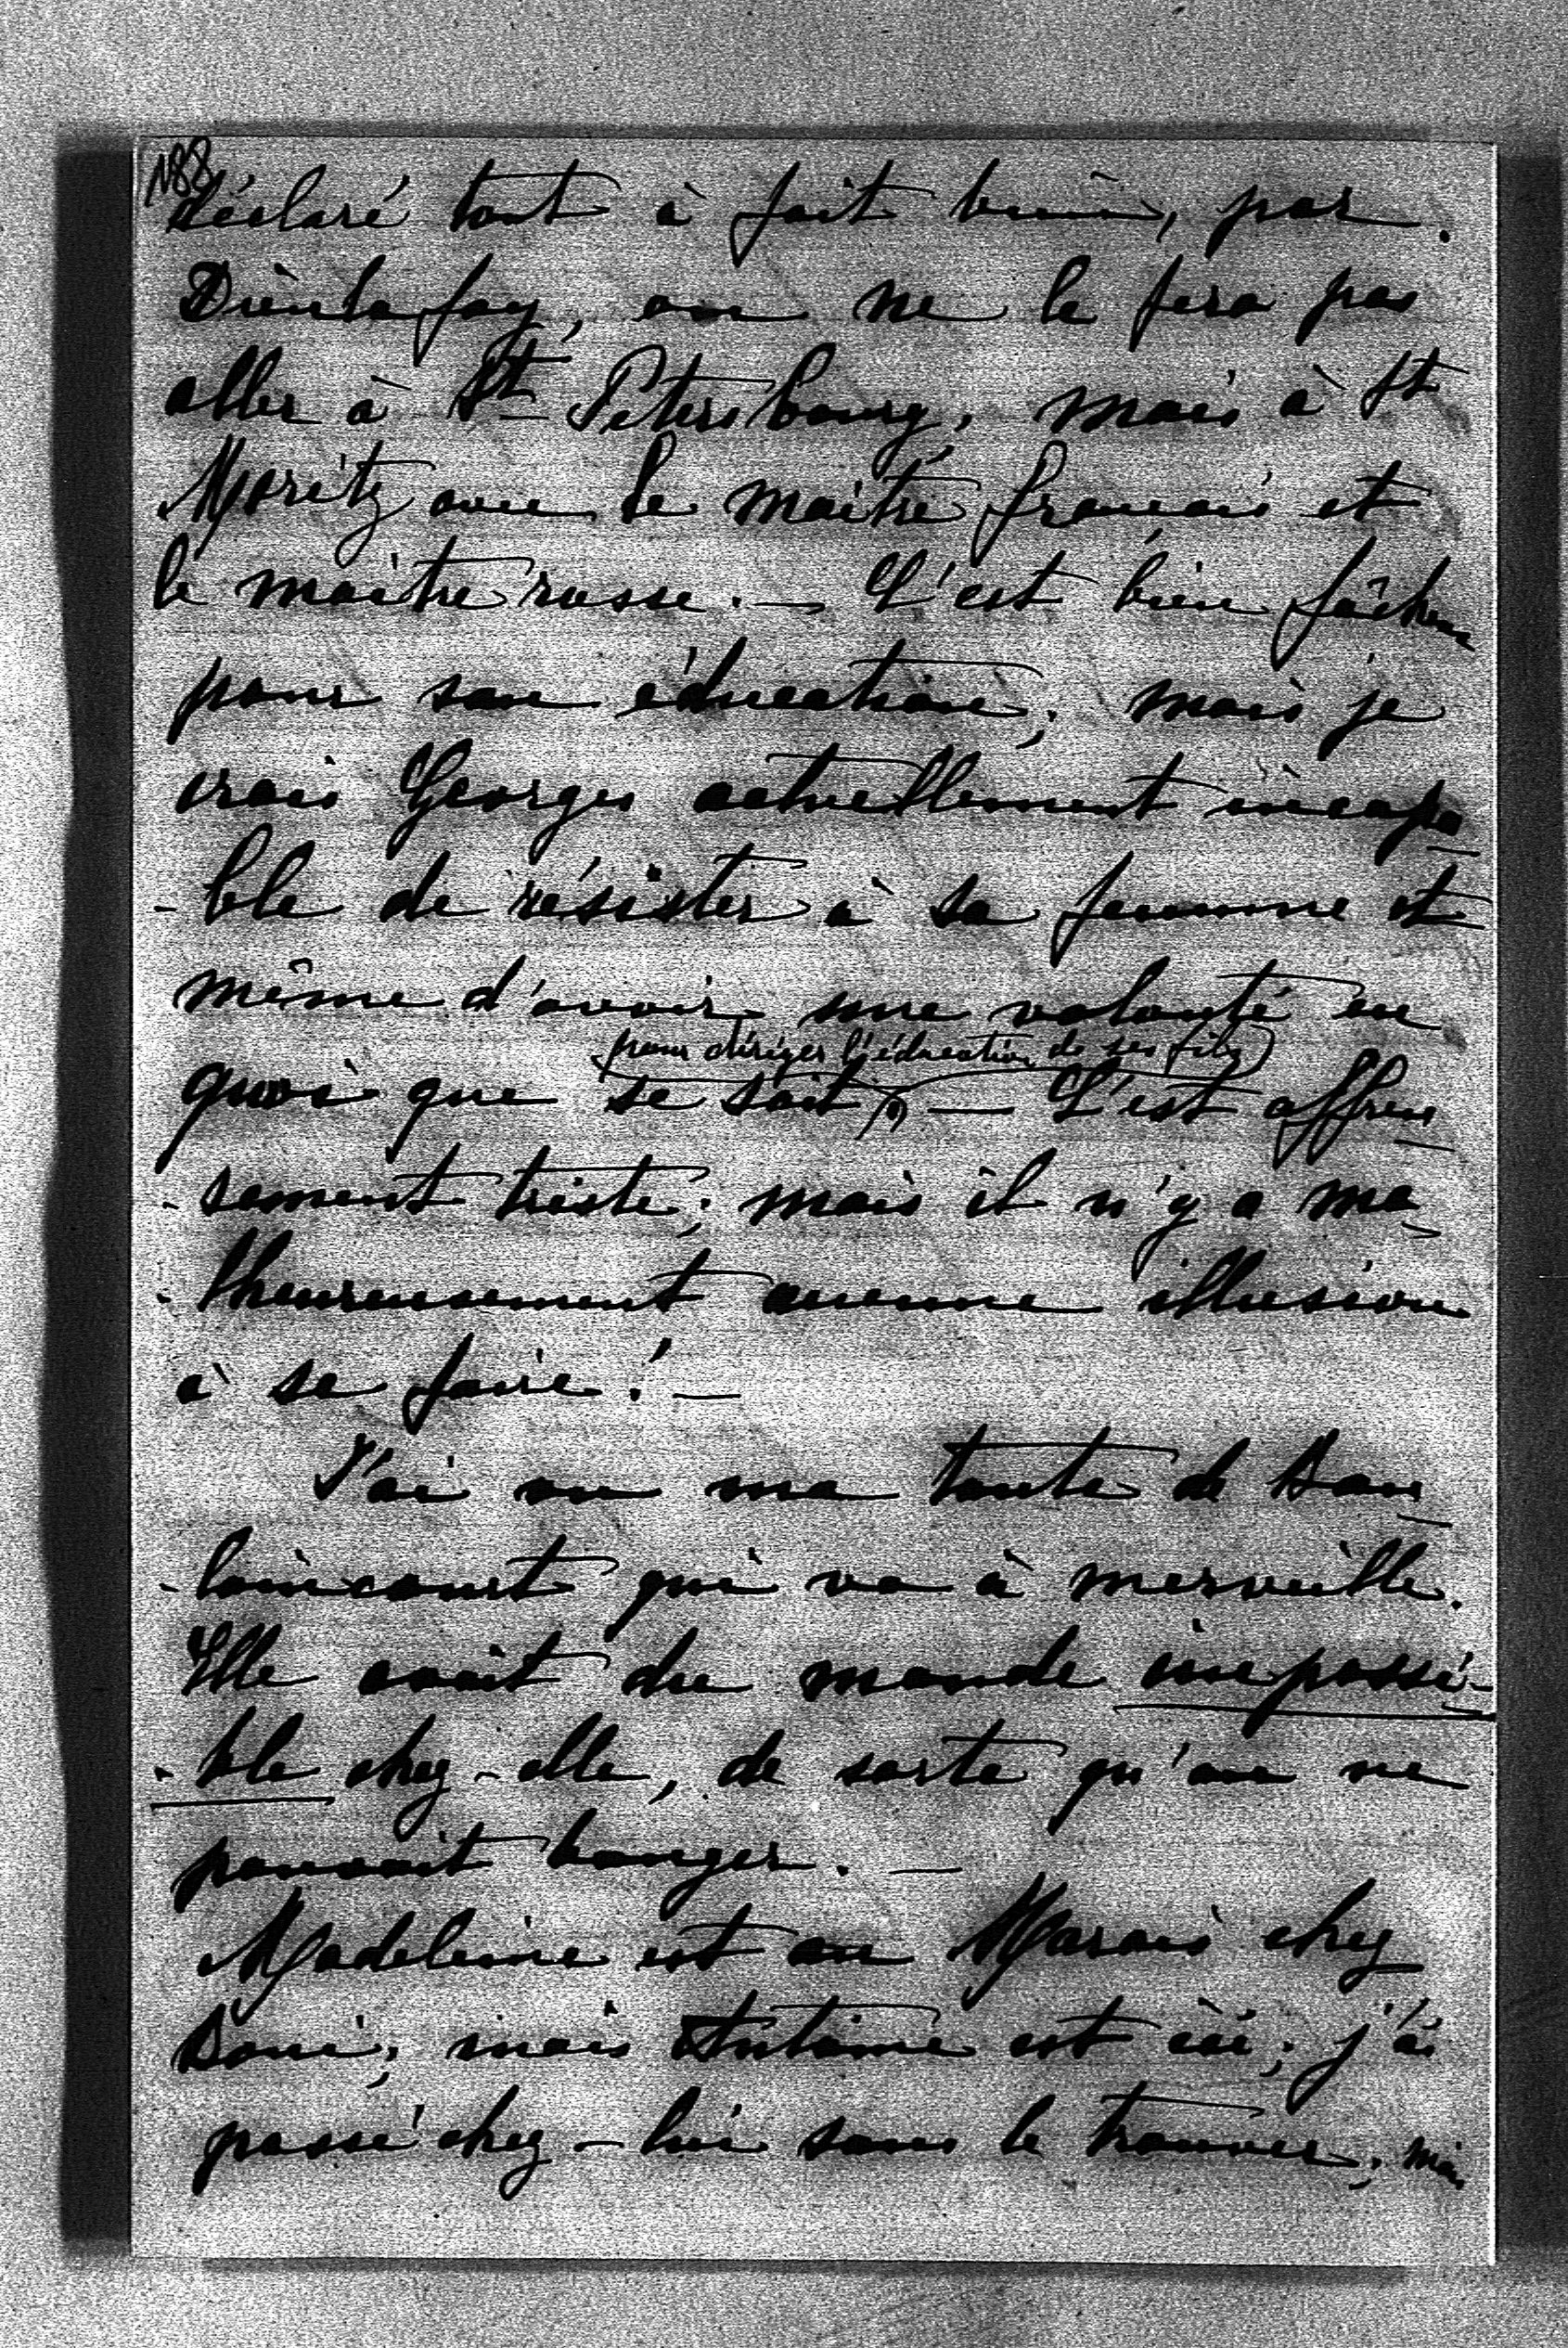 N88
déclaré tout à fait bien, par
Dieulafoy, on ne le fera pas
aller à St Petersbourg, mais à St
Moritz avec le maître français et
le maître russe. — C'est bien fâcheux
pour son éducation; mais je
crois Georges actuellement incapa
-ble de résister à sa femme et
même d'avoir une volonté en
pour diriger l'éducation de ses fils)
quoi que se soit — C'est affreu
-sement triste; mais il n'y a ma
-lheureusement aucune illusion
à se faire! —
J'ai vu ma tante de Cau
-laincourt qui va à merveille.
Elle avait du monde impossi-
-ble chez-elle, de sorte qu'on ne
pouvait bouger. —
Madeleine est au Marais chez
Boni; mais Antoine est ici; j'ai
passé chez-lui sans le trouver; mais